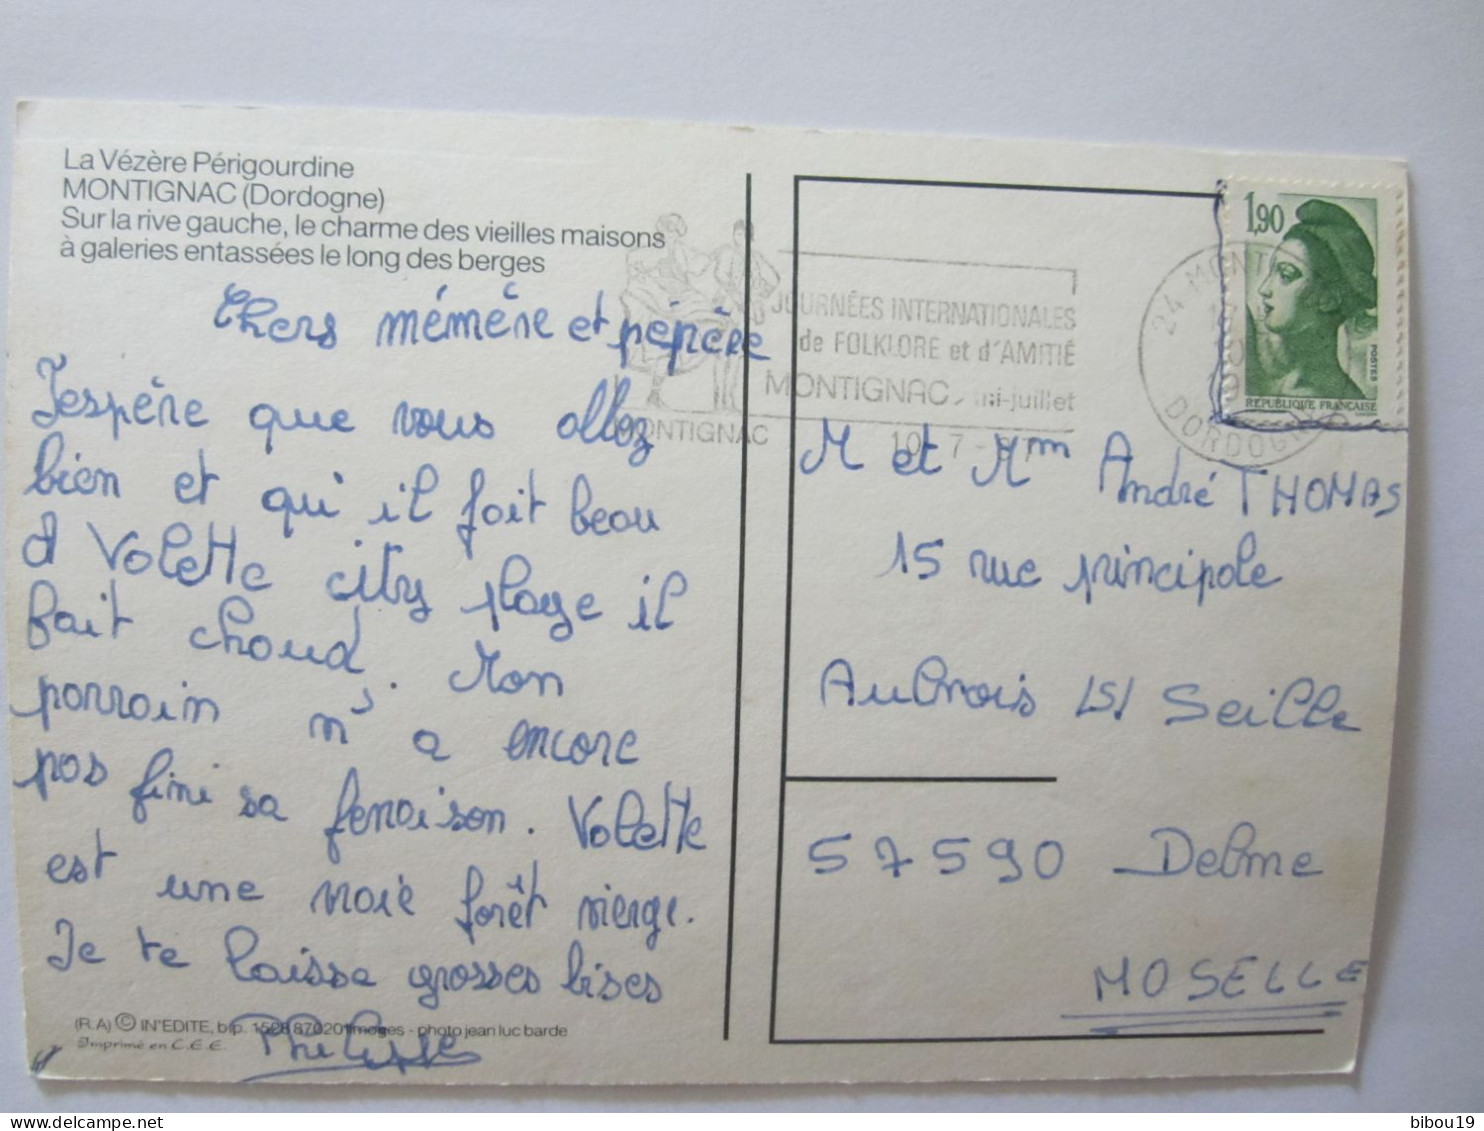 La Vézère Périgourdine
MONTIGNAC (Dordogne)
Sur la rive gauche, le charme des vieilles maisons
à galeries entassées le long des berges
Chers mémère et pépère
J'espère que vous allez
bien et qu'il fait beau
A Volette city plage il
fait chaud. Mon
parrain n'a encore
pas fini sa fenaison. Volette
est une vraie forêt vierge.
Je te laisse grosses bises
Philippe
(R.A) © IN'EDITE, b.p. 1528 87020 limoges - photo jean luc barde
Imprimé en C.E.E.
JOURNÉES INTERNATIONALES
de FOLKLORE et d'AMITIÉ
MONTIGNAC, mi-juillet
MONTIGNAC
24 MONTIGNAC
DORDOGNE
1,90
POSTES
REPUBLIQUE FRANCAISE
M et Mm André THOMAS
15 rue principale
Aulnois /S/ Seille
57590 Delme
MOSELLE
bibou19